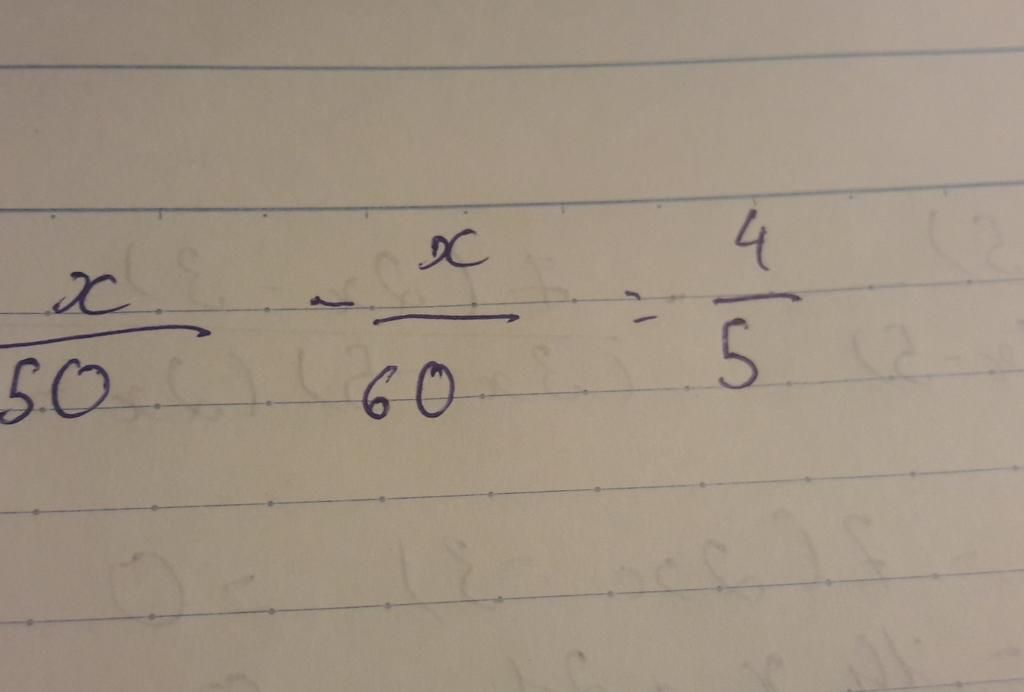 x/50 - x/60 = 4/5